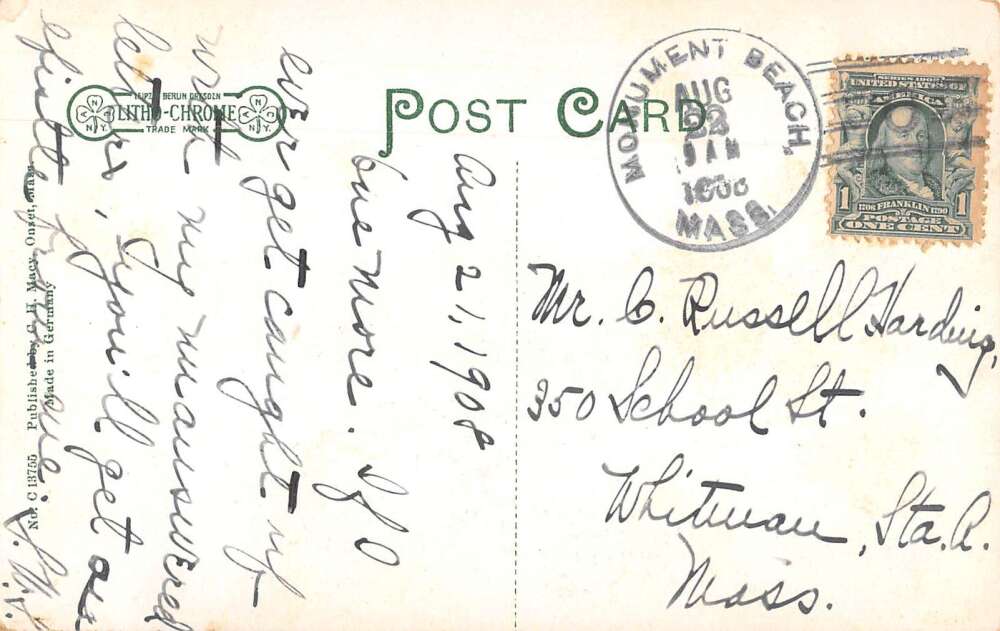 LEIPZIG BERLIN DRESDEN
LITHO-CHROME
TRADE MARK
N.Y.
N.Y.
POST CARD
MONUMENT BEACH,
AUG
22
9 AM
1908
MASS.
SERIES 1902
UNITED STATES OF
AMERICA
1 1706 FRANKLIN 1790 1
POSTAGE
ONE CENT
Aug 21, 1908
One more. If I
ever get caught up
with my unanswered
letters, you'll get an
epistle from me.
Mr. C. Russell Harding,
350 School St.
Whitman, Sta. A.
Mass.
No. C 13755 Published by C. H. Macy, Onset, Mass.
Made in Germany